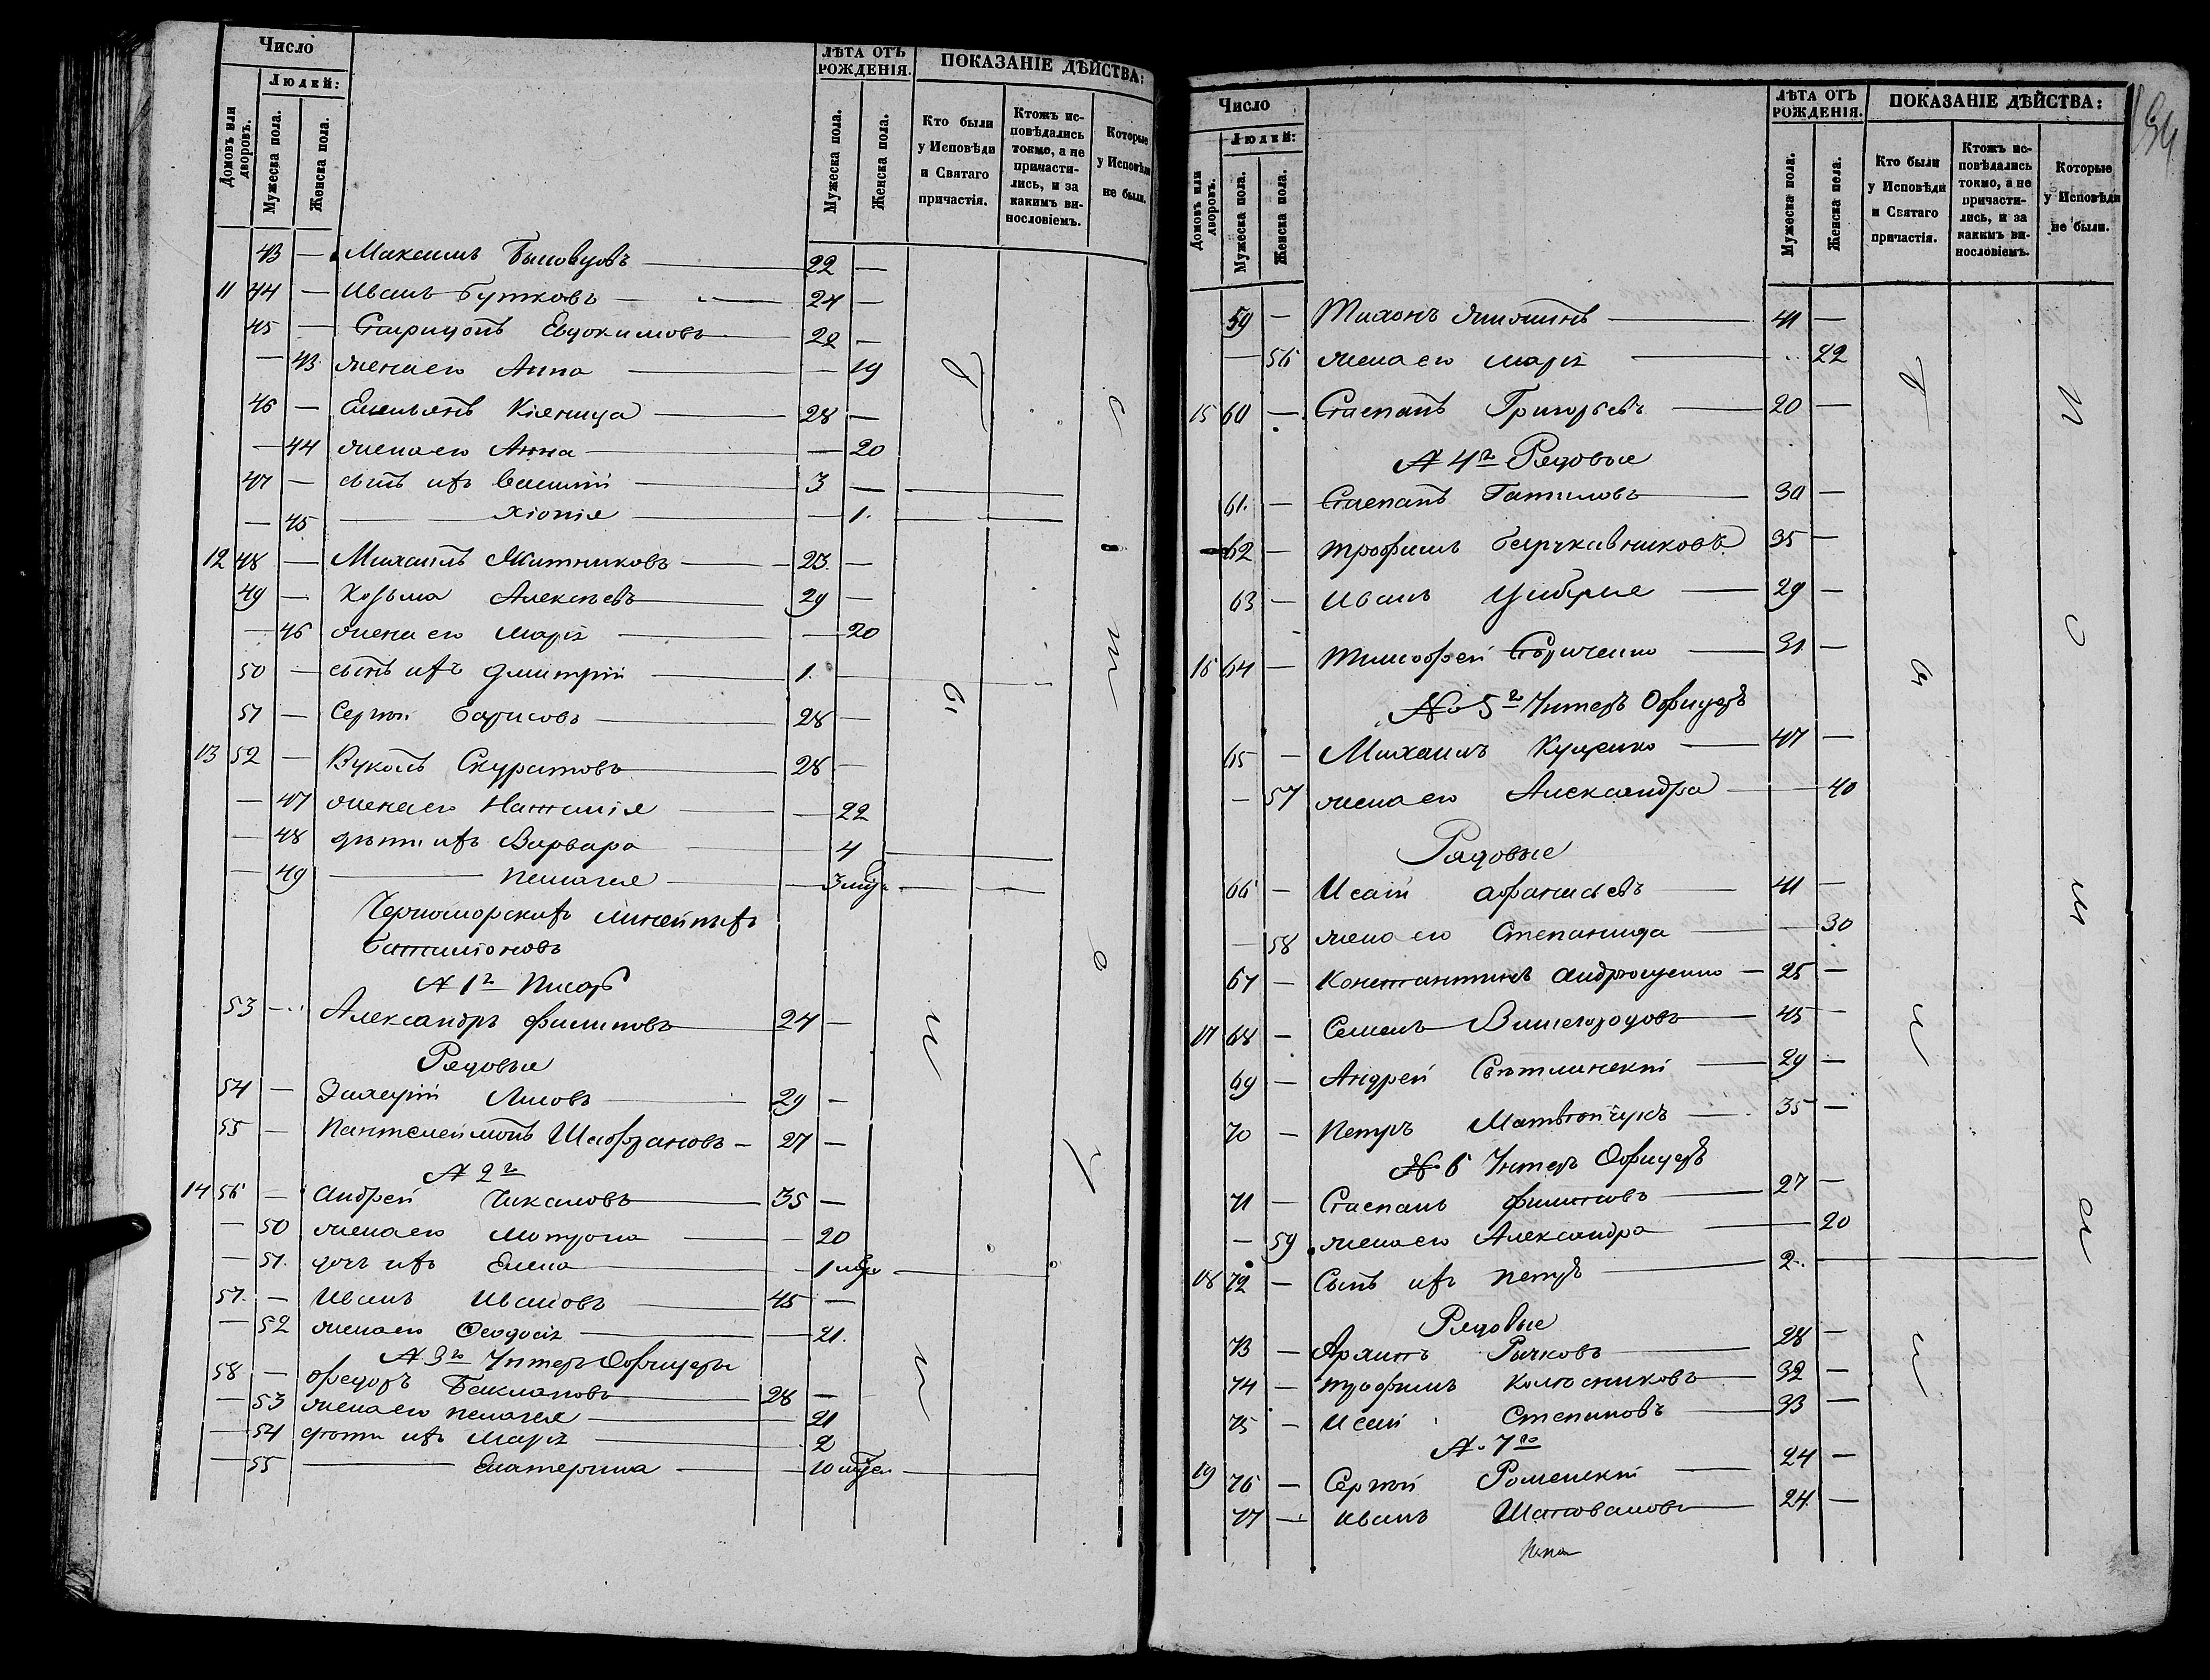 Число
Людей:
Домовъ или дворовъ.
Мужеска пола.
Женска пола.
ЛѢТА ОТЪ РОЖДЕНІЯ.
Мужеска пола.
Женска пола.
ПОКАЗАНІЕ ДѢЙСТВА:
Кто были у Исповѣди и Святаго причастія.
Ктожъ исповѣдались токмо, а не причастились, и за какимъ винословіемъ.
Которые у Исповѣди не были.
43 — Максимъ — 22 —
11 44 — Иванъ Бутковъ — 24 —
45 — Спиридонъ Евдокимовъ — 22 —
— 43 жена его Анна — — 19
46 — Емельянъ Кіяница — 28 —
— 44 жена его Анна — — 20
47 — сынъ ихъ Василій — 3 —
— 45 — Хіонія — — 1.
12 48 — Михаилъ Житниковъ — 23. —
49 — Козьма Алексѣевъ — 29 —
— 46 жена его Марія — — 20
50 — сынъ ихъ Дмитрій — 1.
51 — Сергѣй Борисовъ — 28 —
13 52 — Вуколъ Скуратовъ — 28 —
— 47 жена его Наталія — — 22
— 48 дѣти ихъ Варвара — 4
— 49 — Пелагея — — 3 мѣс.
Черноморскихъ линейныхъ
баталіоновъ
№ 1го Писарь
53 — Александръ Филиповъ — 24 —
Рядовые
54 — Захарій Лисовъ — 29 —
55 — Пантелеймонъ Шафрановъ — 27 —
№ 2го
14 56 — Андрей Чикаловъ — 35 —
— 50 жена его Матрона — — 20
— 51. дочь ихъ Елена — — 1 мѣс.
57. — Иванъ Ивановъ — 45 —
— 52 жена его Ѳеодосія — — 21.
№ 3го Унтеръ Офицеры
58 — Федоръ Баклановъ — 28 —
— 53 жена его Пелагея — 21
— 54 дѣти ихъ Марія — 2
— 55 — Екатерина — — 10 мѣс.
Число
Людей:
Домовъ или дворовъ.
Мужеска пола.
Женска пола.
ЛѢТА ОТЪ РОЖДЕНІЯ.
Мужеска пола.
Женска пола.
ПОКАЗАНІЕ ДѢЙСТВА:
Кто были у Исповѣди и Святаго причастія.
Ктожъ исповѣдались токмо, а не причастились, и за какимъ винословіемъ.
Которые у Исповѣди не были.
59 — Тихонъ — 41 —
— 56 жена его Марія — 22
15 60 — Степанъ Григорьевъ — 20 —
№ 4го Рядовые
61. — Степанъ — 30 —
62 — Трофимъ — 35 —
63 — Иванъ — 29 —
16 64 — Тимофей — 31 —
№ 5го Унтеръ Офицеръ
65 — Михаилъ Куценко — 47 —
— 57 жена его Александра — 40
Рядовые
66 — Исай Афанасьевъ — 41 —
— 58 жена его Степанида — — 30
67 — Константинъ Андрющенко — 25 —
17 68 — Семенъ Вишегородовъ — 45 —
69 — Андрей Свѣтлинскій — 29 —
70 — Петръ Матвѣйчукъ — 35 —
№ 6 Унтеръ Офицеръ
71 — Степанъ Филиповъ — 27 —
— 59 жена его Александра — 20
18 72 — Сынъ ихъ Петръ — 2.
Рядовые
73 — Архипъ Рычковъ — 28 —
74 — Трофимъ Колѣсниковъ — 32 —
75 — Исай Степановъ — 33 —
№ 7го
19 76 — Сергѣй Роменскій — 24 —
77 — Иванъ Шаповаловъ — 24 —